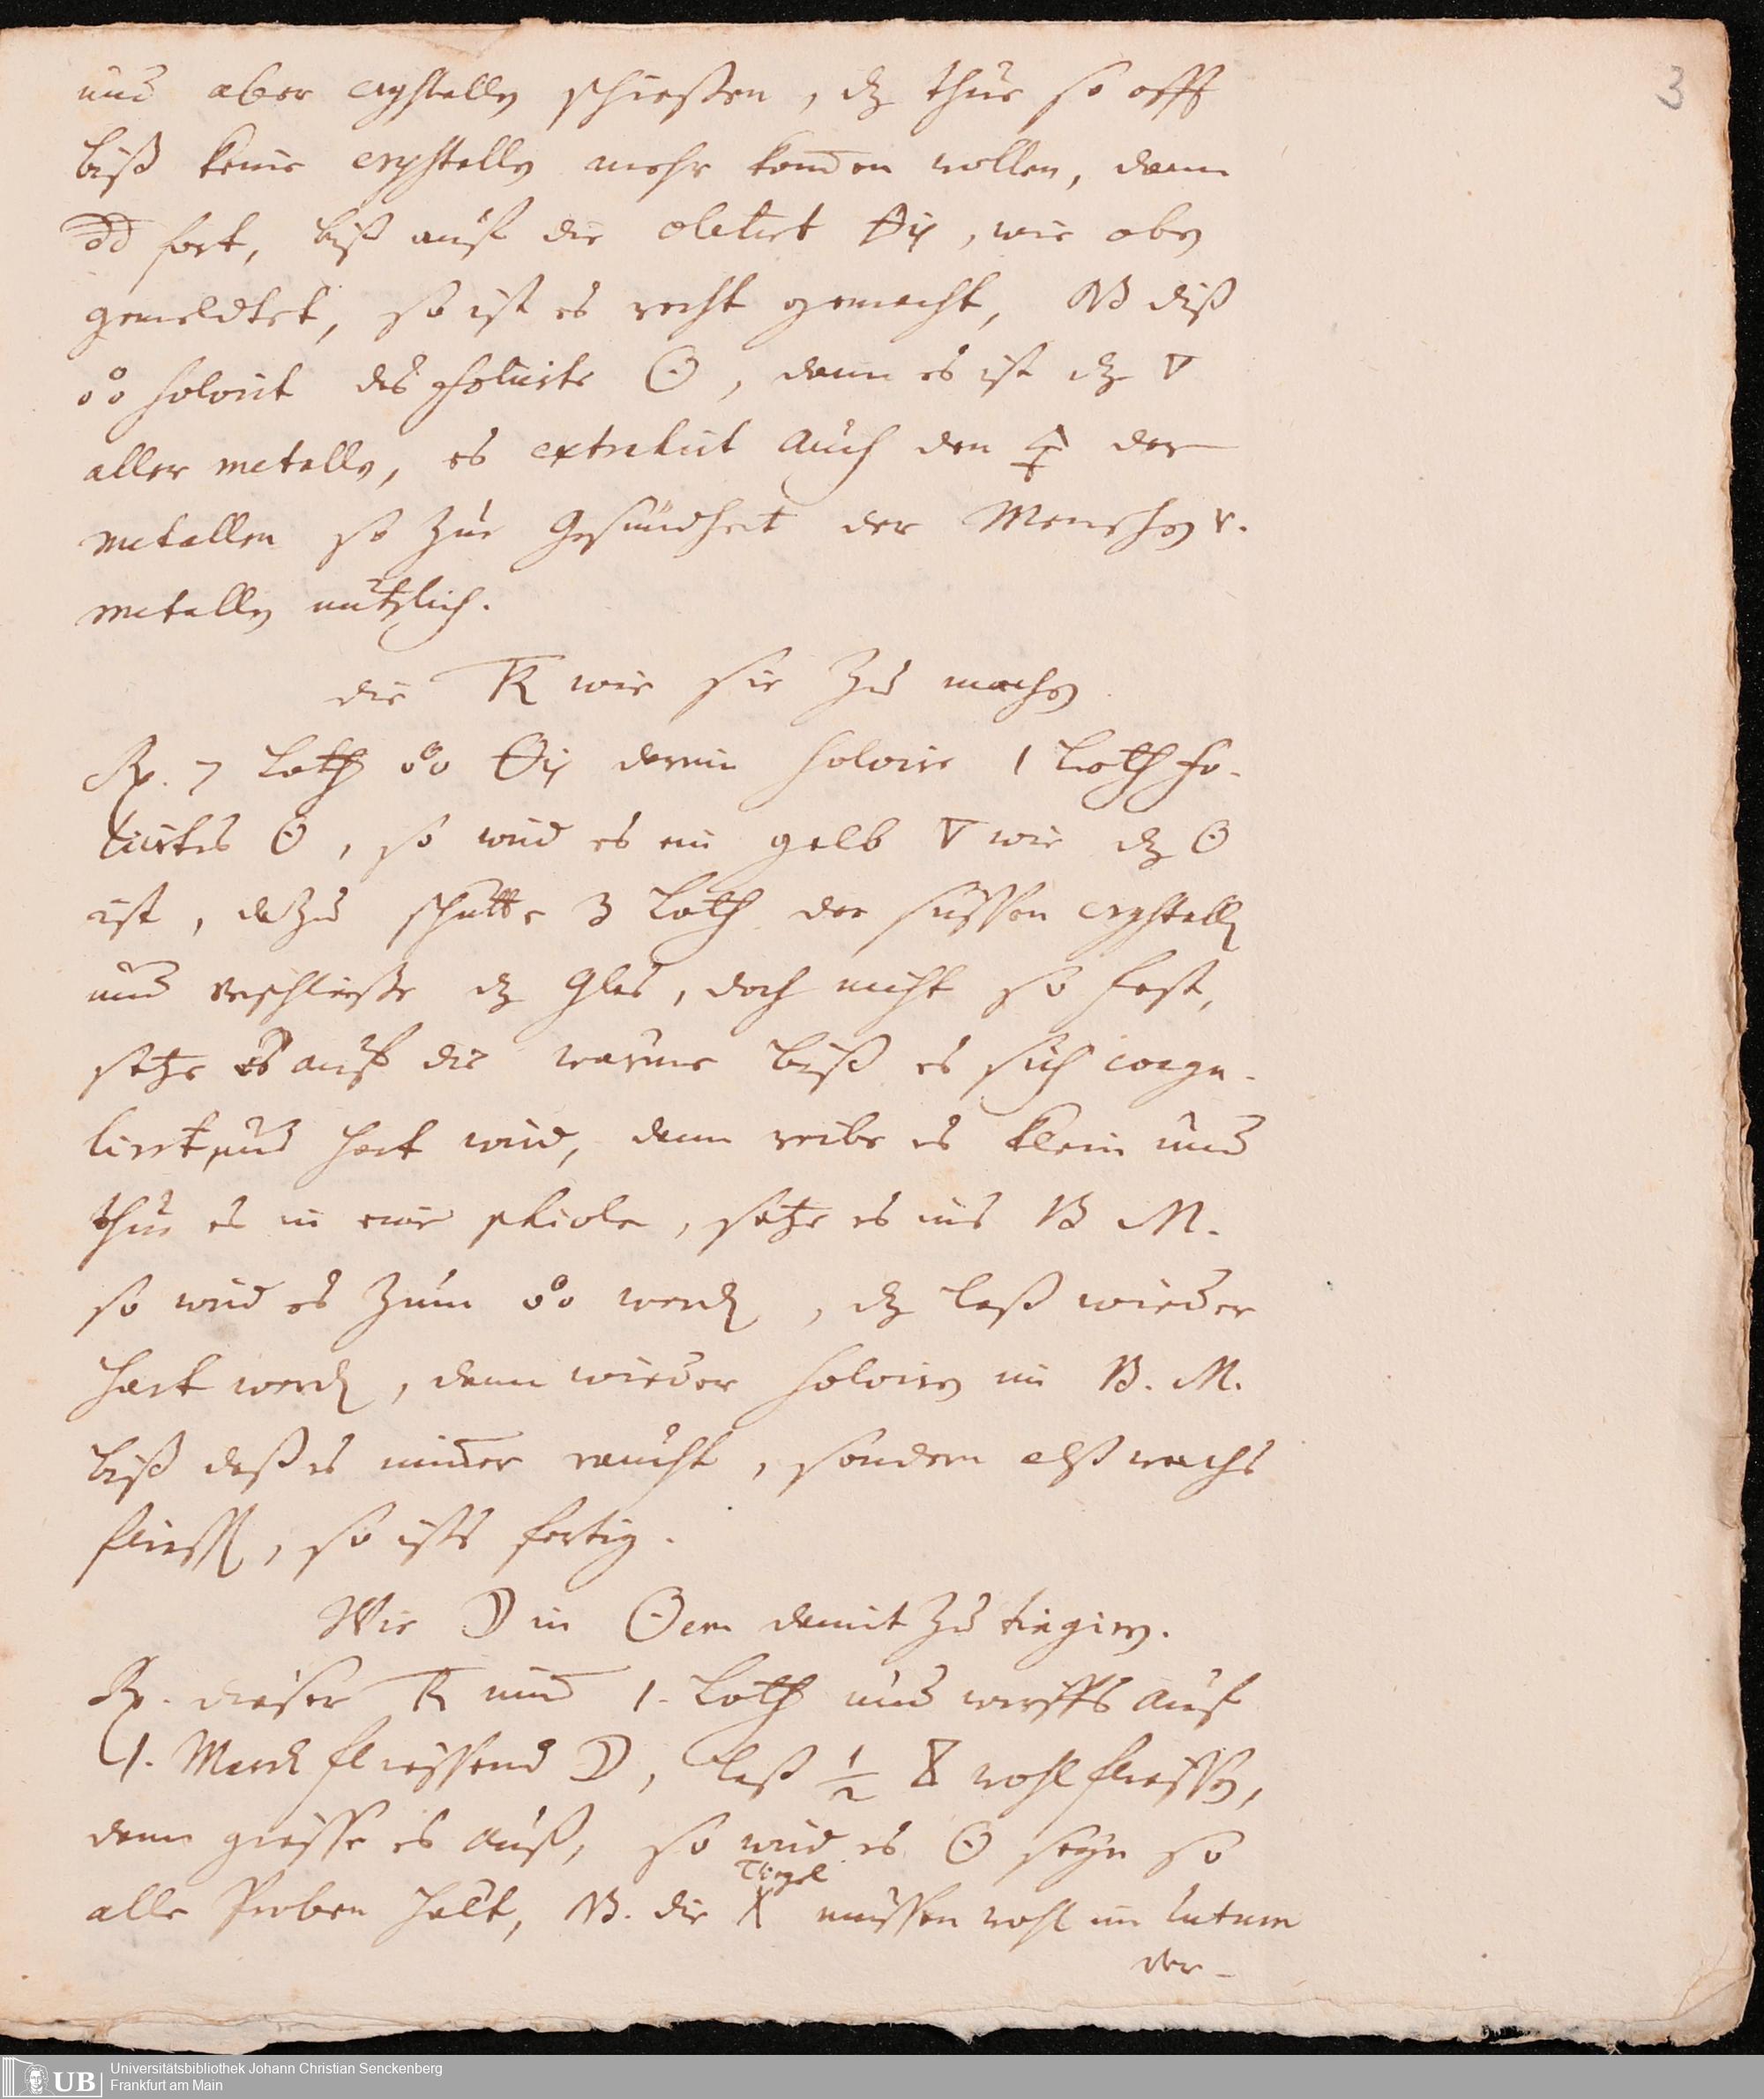 3
und aber crystalln schießen, dz thue so offt
biß keine crystalln mehr kom̄en wollen, dann
fort, biß auf die oletiet 🜖, wie obn
gemeldtet, so ist es recht gemacht, NB diß
o°o solvirt das ☉, dann es ist dz 🜄
aller metalln, es extrahirt auch den 🜍 der
metallen so zur Gesundheit der Menschn v.
metalln nützlich.
die TR wie sie zu machn
Rx. 7 Loth o°o darein solvire 1 Loth so-
lvirtes ☉, so wird es ein gelb 🜄 wie dz ☉
ist, dazu schütte 3 Loth der süssen crystalln
und verschliesse dz Glas, doch nicht so fest,
setze es auf die warme biß es sich coagu-
lirt, und hart wird, dann reibe es klein und
thue es in eine phiole, setze es ins B M.
so wird es zum o°o werdn, dz laß wieder
hart werdn, dann wieder solvirn im B. M.
biß daß es nim̄er raucht, sondern alß wachs
fliesst, so ists fertig.
Wie ☽ in ☉em damit zu tingirn.
Rx. dieser TR nim̄ 1. Loth und wirffs auf
1. Marck fliessend ☽, laß ½ ⧖ wohl fliessn,
dann giesse es auß, so wird es ☉ seyn so
Tigel
alle Proben halt, NB. die X müssen wohl im lutum
ver-
UB Universitätsbibliothek Johann Christian Senckenberg
Frankfurt am Main